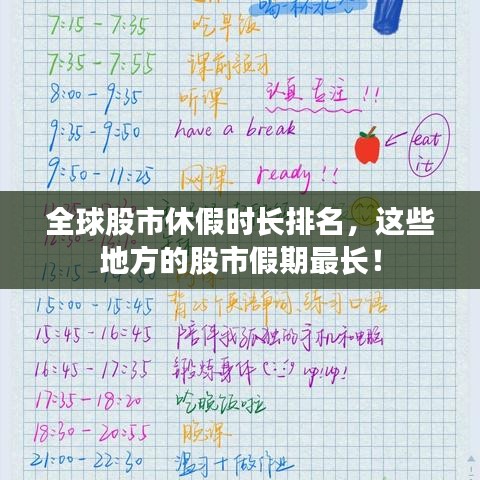 喝一杯水
7:15 - 7:35 吃早饭
7:35 - 7:55 课前预习
8:00 - 9:35 听课 认真 专注!!
9:35 - 9:50 have a break eat it
9:50 - 11:25 网课 ready!!
全球股市休假时长排名，这些
地方的股市假期最长！
15:00 - 15:45 背25个英语单词、练习口语
15:45 - 16:45 陪伴我孤独的手机和电脑
16:45 - 17:35 锻炼身体 up!up!
17:35 - 18:20 吃晚饭啦
18:30 - 20:55 晚课
21:00 - 22:30 温习+做作业